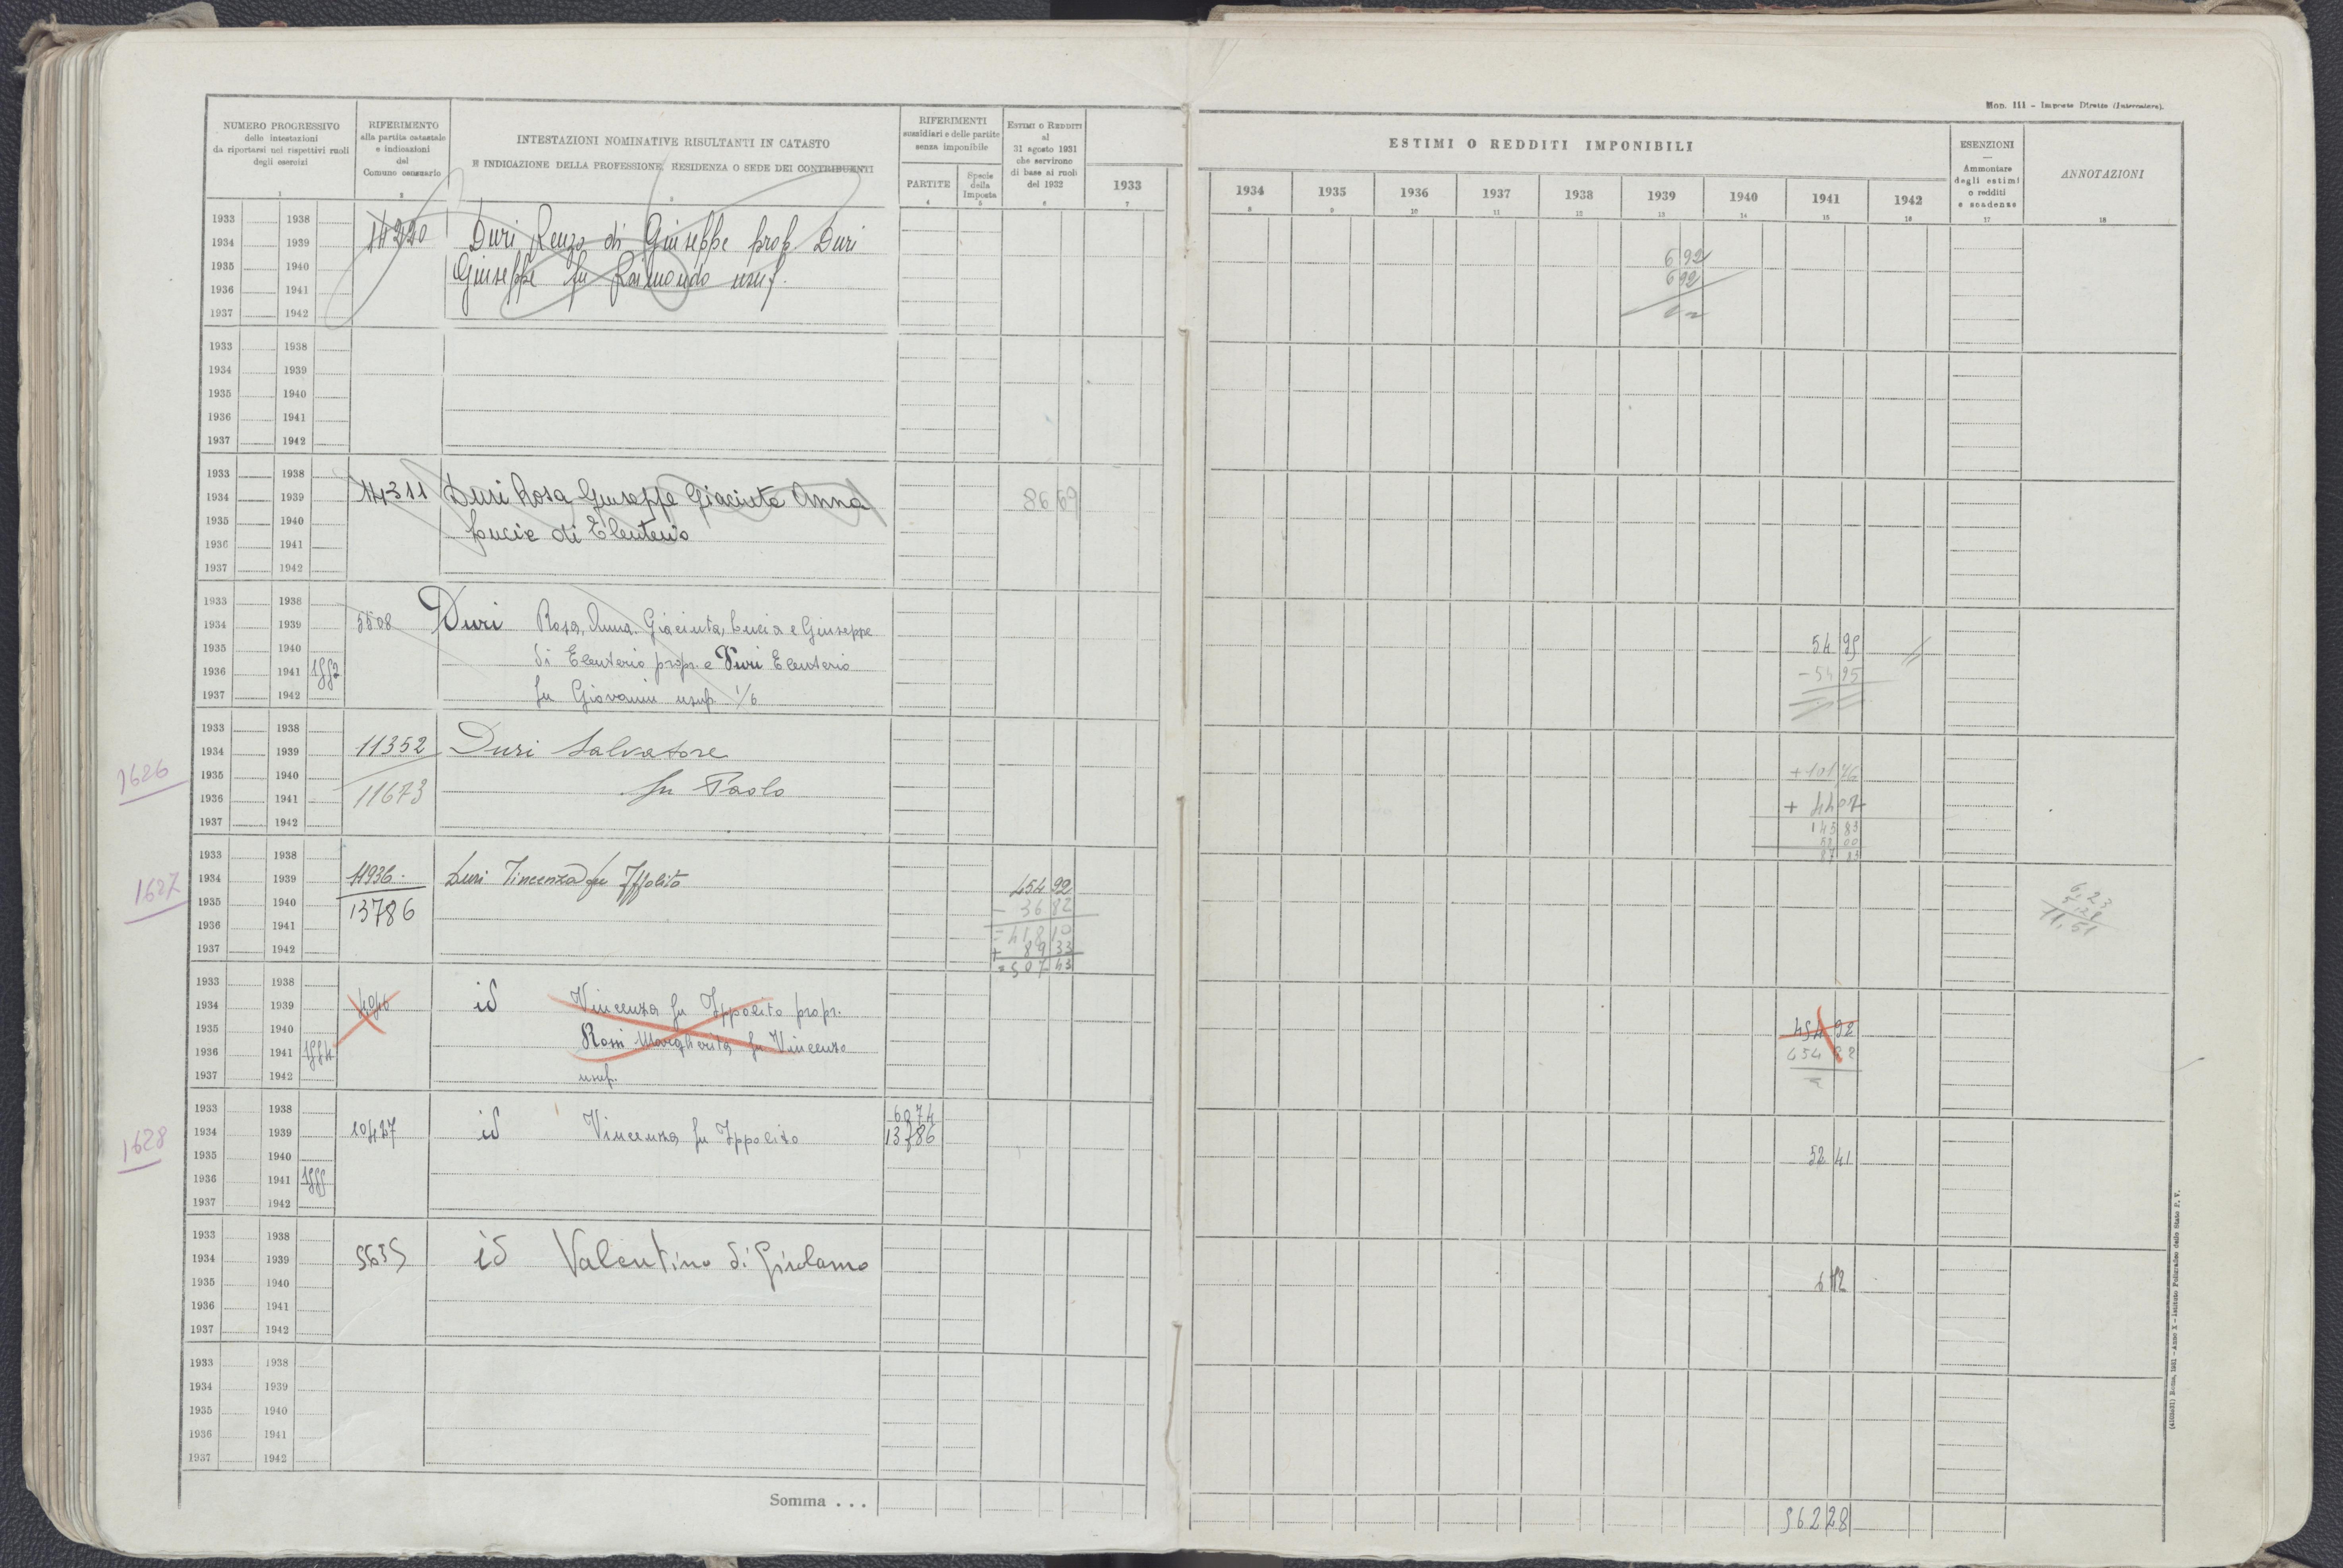 Mod. 111 - Imposte Dirette (Intercalare).
NUMERO PROGRESSIVO
delle intestazioni
da riportarsi nei rispettivi ruoli
degli esercizi
1
RIFERIMENTO
alla partita catastale
e indicazioni
del
Comune censuario
2
INTESTAZIONI NOMINATIVE RISULTANTI IN CATASTO
E INDICAZIONE DELLA PROFESSIONE, RESIDENZA O SEDE DEI CONTRIBUENTI
3
RIFERIMENTI
sussidiari e delle partite
senza imponibile
PARTITE
4
Specie
della
Imposta
5
ESTIMI O REDDITI
al
31 agosto 1931
che servirono
di base ai ruoli
del 1932
6
1933
7
ESTIMI O REDDITI IMPONIBILI
1934 1935 1936 1937 1938 1939 1940 1941 1942
8 9 10 11 12 13 14 15 16
ESENZIONI
Ammontare
degli estimi
o redditi
e scadenze
17
ANNOTAZIONI
18
1933 1938
1934 1939
1935 1940
1936 1941
1937 1942
14220 Duri Renzo di Giuseppe prop. Duri
Giuseppe fu Raimondo usuf.
6 92
6 92
1933 1938
1934 1939
1935 1940
1936 1941
1937 1942
1933 1938
1934 1939
1935 1940
1936 1941
1937 1942
14311 Duri Rosa Giuseppe Giacinta Anna
Lucia di Eleuterio
86 69
1933 1938
1934 1939
1935 1940
1936 1941
1937 1942
5508 Duri Rosa, Anna, Giacinta, Lucia e Giuseppe
di Eleuterio propr. e Duri Eleuterio
fu Giovanni usuf. 1/6
54 95
- 54 95
1933 1938
1934 1939
1935 1940
1936 1941
1937 1942
1626
11352 Duri Salvatore
11673 fu Paolo
+ 101 76
+ 44 07
145 83
87 83
1933 1938
1934 1939
1935 1940
1936 1941
1937 1942
1627
11936 Duri Vincenza fu Ippolito
13786
454 92
- 36 82
= 418 10
+ 89 33
= 507 43
6 23
11,51
1933 1938
1934 1939
1935 1940
1936 1941
1937 1942
id Vincenza fu Ippolito propr.
Rossi Margherita fu Vincenzo
usuf.
454 92
454 92
1933 1938
1934 1939
1935 1940
1936 1941
1937 1942
1628
10427 id Vincenza fu Ippolito
6074
13786
52 41
1933 1938
1934 1939
1935 1940
1936 1941
1937 1942
5635 id Valentino di Girolamo
6 12
1933 1938
1934 1939
1935 1940
1936 1941
1937 1942
Somma . . .
562 28
(4103631) Roma, 1931 - Anno X - Istituto Poligrafico dello Stato P. V.